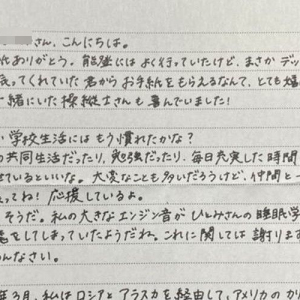 さん、こんにちは。
ありがとう。能登にはよく行っていたけど、まさかデッ
てくれていた君からお手紙をもらえるなんて、とても嬉
緒にいた操縦士さんも喜んでいました!
学校生活にはもう慣れたかな?
の共同生活だったり、勉強だったり、毎日充実した時間
ているといいな。大変なことも多いだろうけど、仲間と一
ってね!応援しているよ。
そうだ。私の大きなエンジン音がひとみさんの睡眠学
をしてしまっていたようだね。これに関しては謝ります
んなさい。
年3月、私はロシアとアラスカを経由して、アメリカのカリ